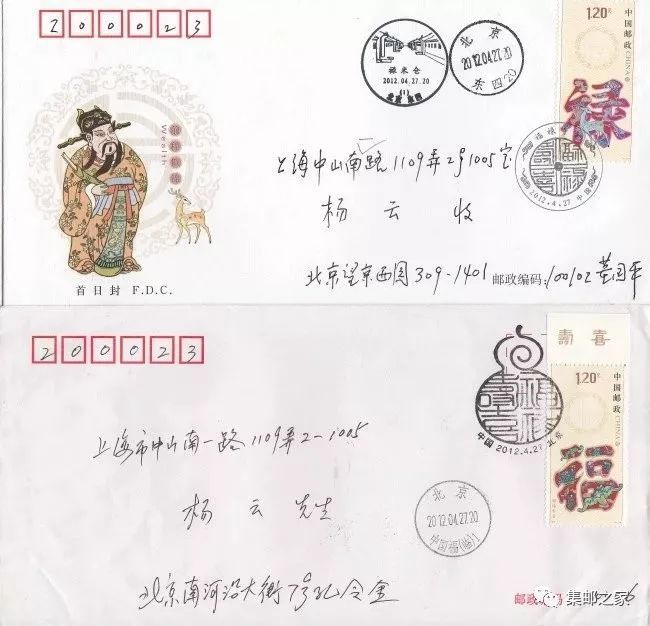 200023
北京
2012.04.27.20
东四20
禄米仓
2012.04.27.20
(1)
北京
1.20元
中国邮政
CHINA
禄
Wealth
2012.4.27
中国
上海中山南路1109弄2号1005室
杨云 收
北京望京西园309-1401 邮政编码:100102
首日封 F.D.C.
200023
壽 喜
1.20元
中国邮政
CHINA
福
中国 2012.4.27 北京
上海市中山南一路1109弄2-1005
杨云 先生
北京
2012.04.27.20
北京南河沿大街
邮政编码
集邮之家